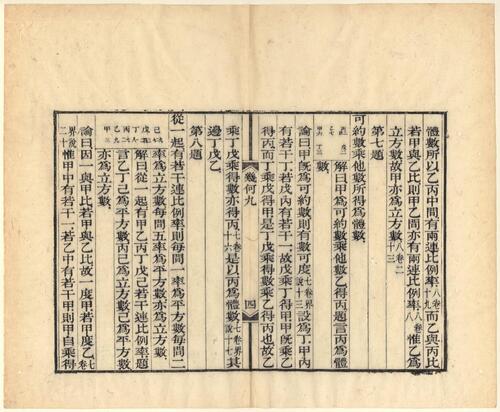 體數所以乙丙中間有兩連比例率八卷十九而乙與丙比
若甲與乙比則甲乙間亦有兩連比例率八卷八惟乙為
立方數故甲亦為立方數八卷二十三
第七題
可約數乘他數所得為體數
解曰甲為可約數乘他數乙得丙題言丙為體
數
論曰甲既為可約數則有數可度七卷界說十三設為丁甲內
有若干丁若戊內有若干一故戊乘丁得甲甲既乘乙
得丙而丁乘戊得甲是丁戊乘得數乘乙得丙也故乙
幾何九
四
乘丁戊乘得數亦得丙七卷十六是以丙為體數七卷界說十七其
邊丁戊乙
第八題
從一起有若干連比例率則每間一率為平方數每間二
率為立方數每間五率為平方數亦為立方數
解曰從一起有甲乙丙丁戊己若干連比例率題
言乙丁己為平方數丙己為立方數己為平方數
亦為立方數
論曰因一與甲比若甲與乙比故一度甲若甲度乙七卷
界說二十惟甲中有若干一若乙中有若干甲則甲自乘得